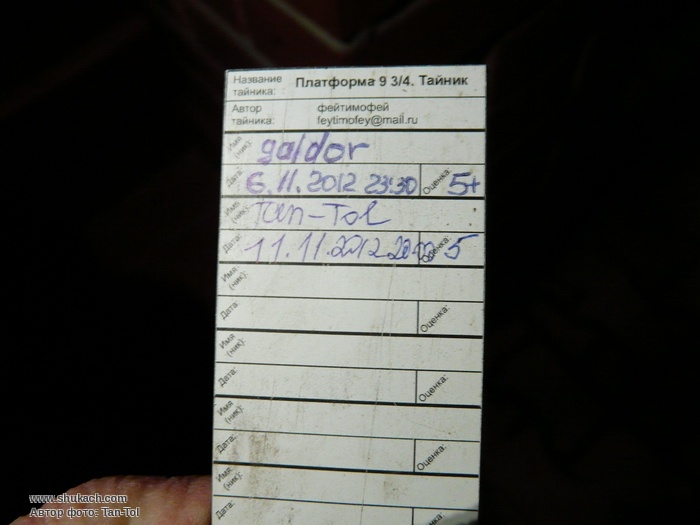 Название тайника: Платформа 9 3/4. Тайник
Автор тайника: фейтимофей
feytimofey@mail.ru
Имя (ник): galdor
Дата: 6.11.2012 23:30 Оценка: 5+
Имя (ник): Tan-Tol
Дата: 11.11.2012 Оценка: 5
Имя (ник):
Дата: Оценка:
Имя (ник):
Дата: Оценка:
Имя (ник):
Дата: Оценка:
Имя (ник):
Дата:
www.shukach.com
Автор фото: Tan-Tol